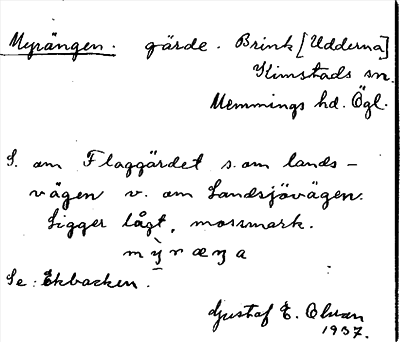 Myrängen. gärde. Brink [Udderna]
Kimstads sn.
Memmings hd. Ögl.
S. om Flaggärdet s. om lands-
vägen v. om Landsjövägen.
Ligger lågt, mossmark.
Se: Ekbacken.
Gustaf E. Olsson
1937.